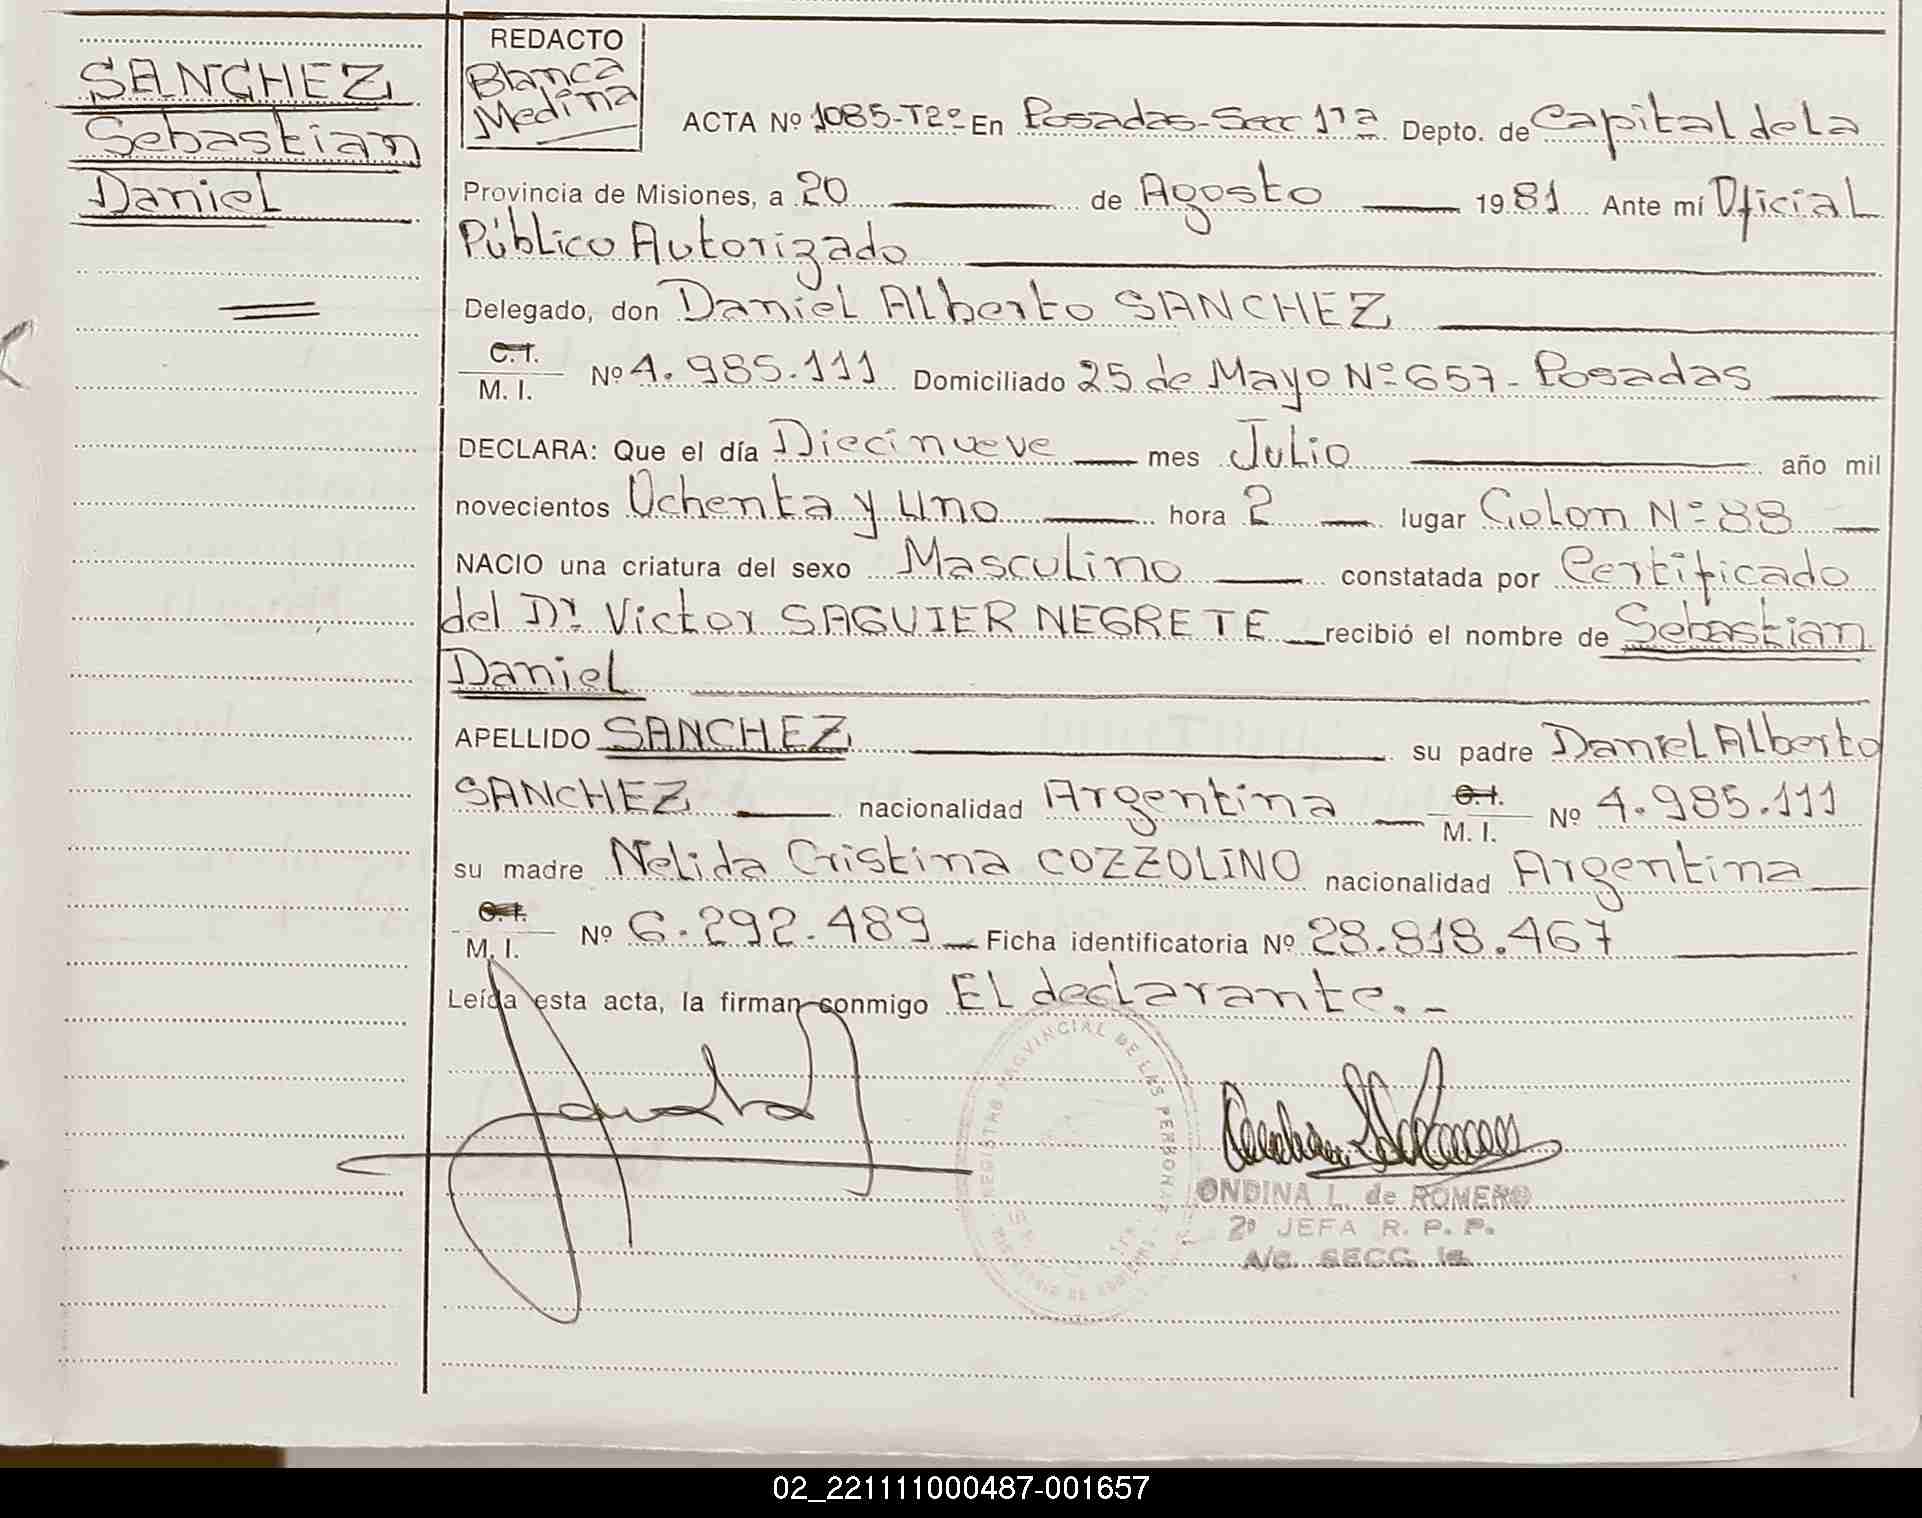 SANCHEZ
Sebastian
Daniel
REDACTO
Blanca
Medina
ACTA Nº 1085-T2º En Posadas-Secc 1ra Depto. de Capital de La
Provincia de Misiones, a 20 de Agosto 1981 Ante mí Oficial
Público Autorizado
Delegado, don Daniel Alberto SANCHEZ
C.I.
M. I. Nº 4.985.111 Domiciliado 25 de Mayo Nº 657 - Posadas
DECLARA: Que el día Diecinueve mes Julio año mil
novecientos Ochenta y Uno hora 2 lugar Colon Nº 88
NACIO una criatura del sexo Masculino constatada por Certificado
del Dr. Victor SAGUIER NEGRETE recibió el nombre de Sebastian
Daniel
APELLIDO SANCHEZ su padre Daniel Alberto
SANCHEZ nacionalidad Argentina C.I. M. I. Nº 4.985.111
su madre Nelida Cristina COZZOLINO nacionalidad Argentina
C.I.
M. I. Nº 6.292.489 Ficha identificatoria Nº 28.818.467
Leída esta acta, la firman conmigo El declarante.-
REGISTRO PROVINCIAL DE LAS PERSONAS
ONDINA L. de ROMERO
2º JEFA R. P. P.
A/C. SECC. 1a.
02_221111000487-001657